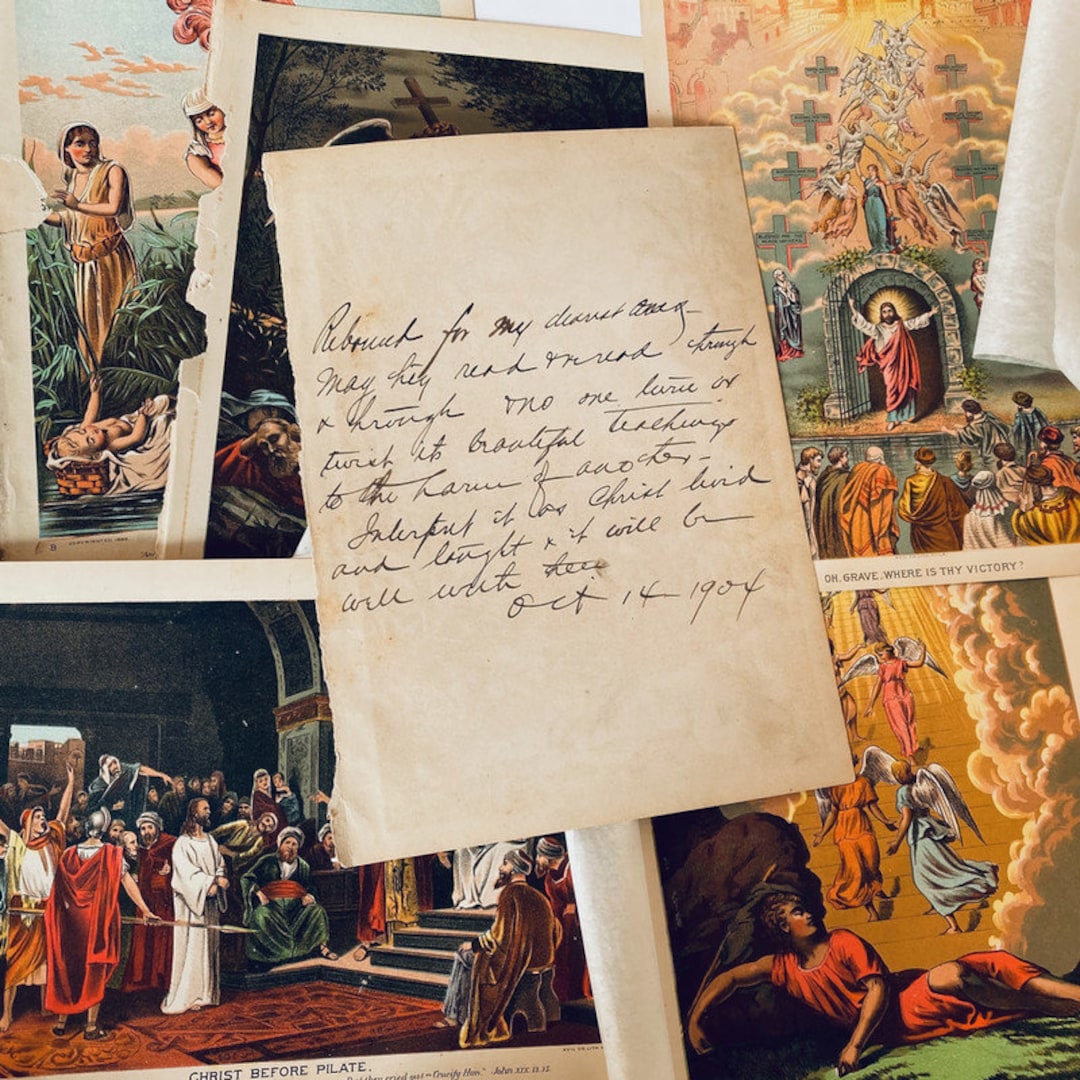 Rebound for my dearest ones –
May they read & reread through
& through & no one turn or
twist its beautiful teachings
to the harm of another. –
Interpret it as Christ lived
and taught & it will be
well with
Oct 14 – 1904
OH, GRAVE, WHERE IS THY VICTORY?
CHRIST BEFORE PILATE.
But they cried out – "Crucify Him." John XIX. 13. 15.
B COPYRIGHTED